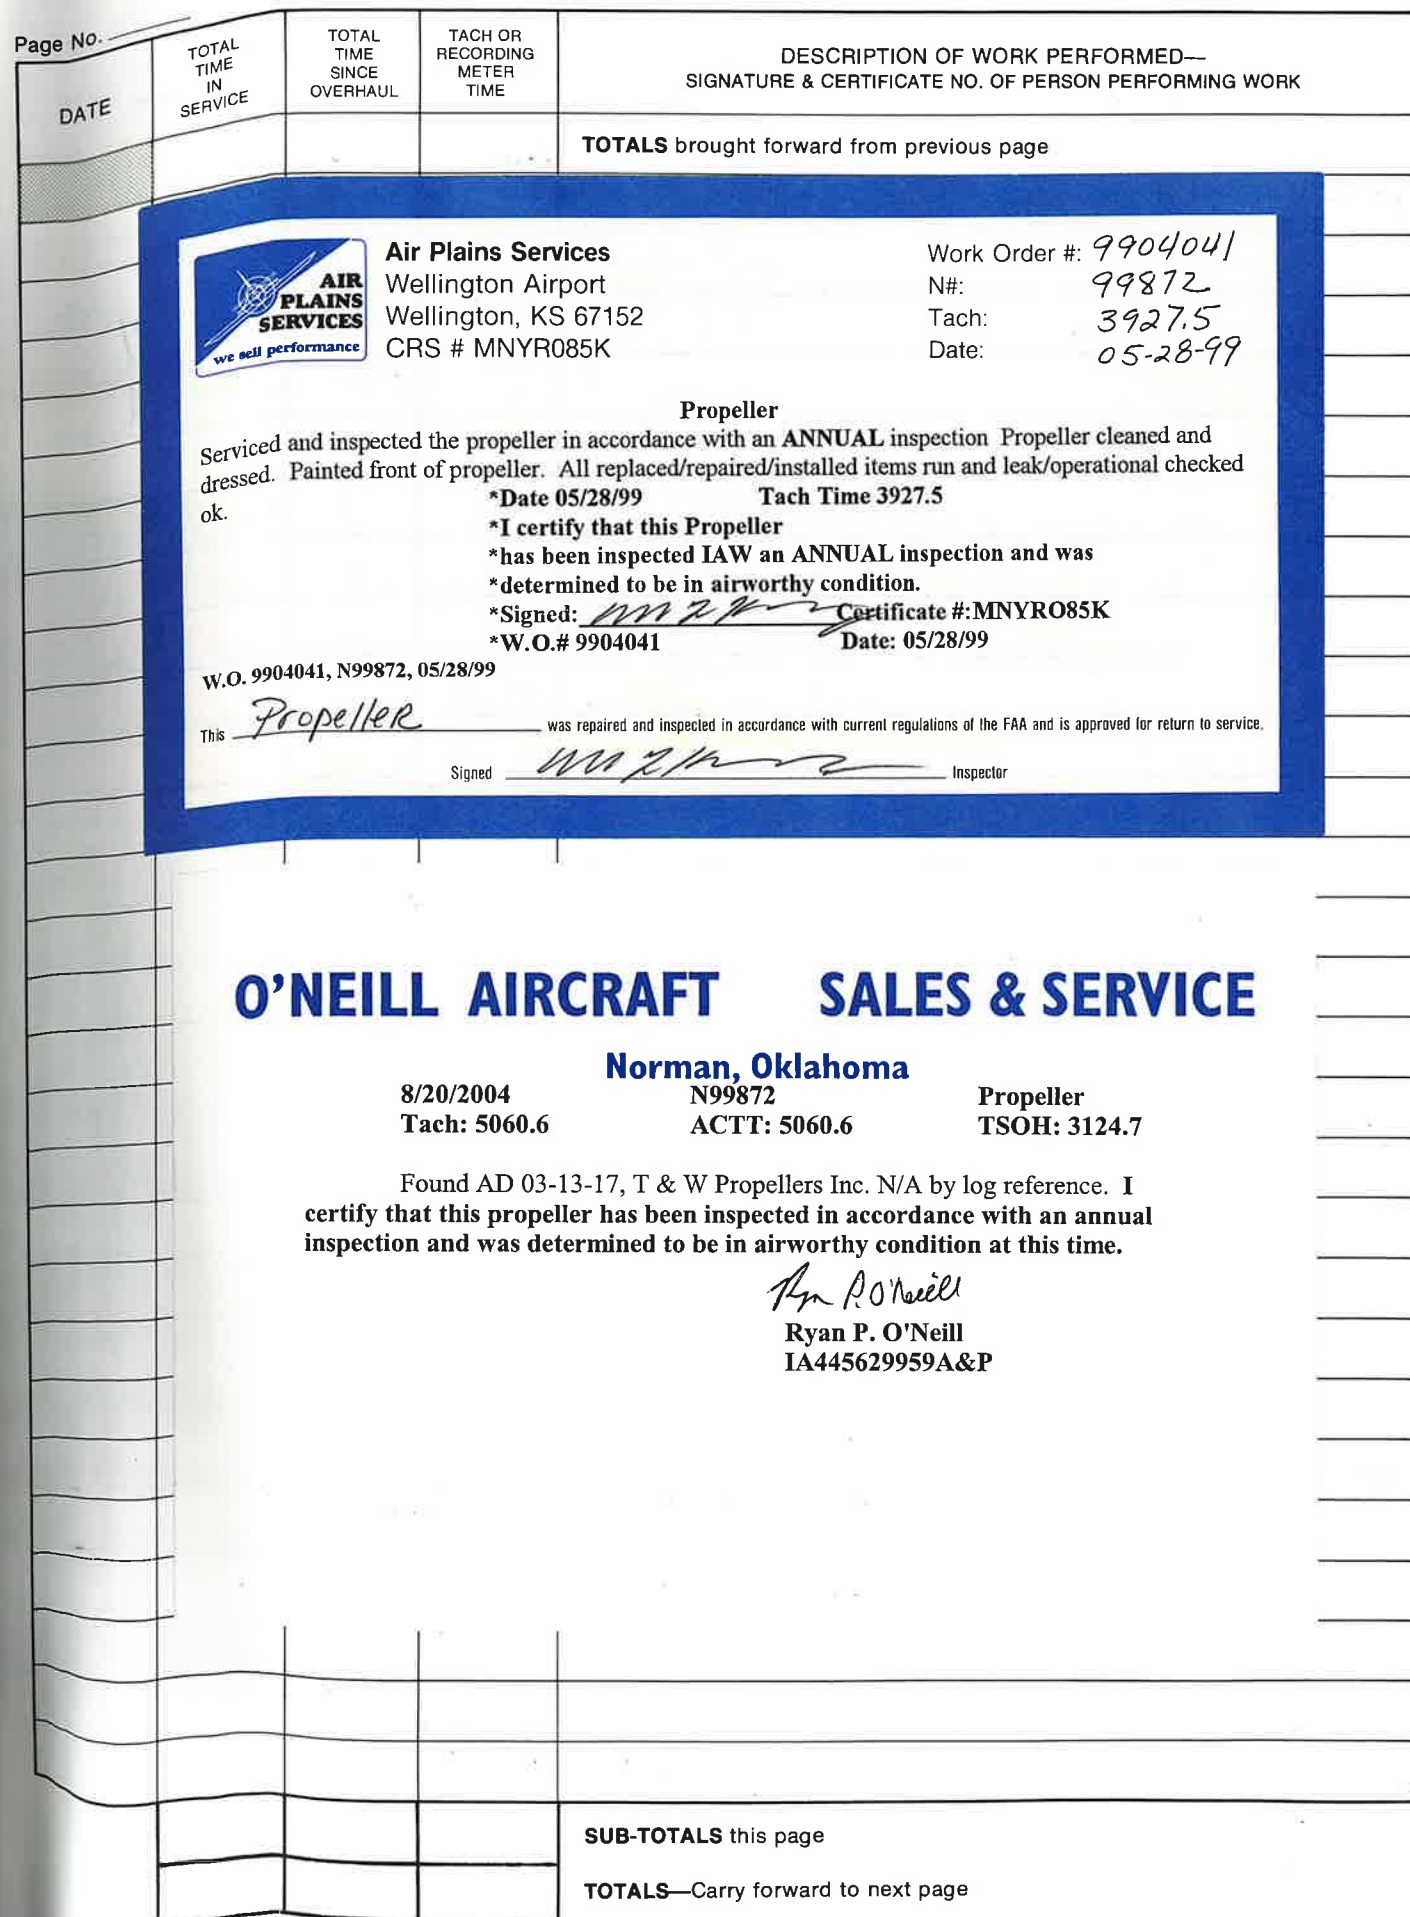 Page No.
DATE
TOTAL TIME IN SERVICE
TOTAL TIME SINCE OVERHAUL
TACH OR RECORDING METER TIME
DESCRIPTION OF WORK PERFORMED—
SIGNATURE & CERTIFICATE NO. OF PERSON PERFORMING WORK
TOTALS brought forward from previous page
AIR
PLAINS
SERVICES
we sell performance
Air Plains Services
Wellington Airport
Wellington, KS 67152
CRS # MNYR085K
Work Order #: 9904041
N#: 99872
Tach: 3927.5
Date: 05-28-99
Propeller
Serviced and inspected the propeller in accordance with an ANNUAL inspection Propeller cleaned and
dressed. Painted front of propeller. All replaced/repaired/installed items run and leak/operational checked
ok.
*Date 05/28/99 Tach Time 3927.5
*I certify that this Propeller
*has been inspected IAW an ANNUAL inspection and was
*determined to be in airworthy condition.
*Signed: Certificate #:MNYRO85K
*W.O.# 9904041 Date: 05/28/99
W.O. 9904041, N99872, 05/28/99
This Propeller was repaired and inspected in accordance with current regulations of the FAA and is approved for return to service.
Signed Inspector
O'NEILL AIRCRAFT SALES & SERVICE
Norman, Oklahoma
8/20/2004 N99872 Propeller
Tach: 5060.6 ACTT: 5060.6 TSOH: 3124.7
Found AD 03-13-17, T & W Propellers Inc. N/A by log reference. I
certify that this propeller has been inspected in accordance with an annual
inspection and was determined to be in airworthy condition at this time.
Ryan P. O'Neill
Ryan P. O'Neill
IA445629959A&P
SUB-TOTALS this page
TOTALS—Carry forward to next page